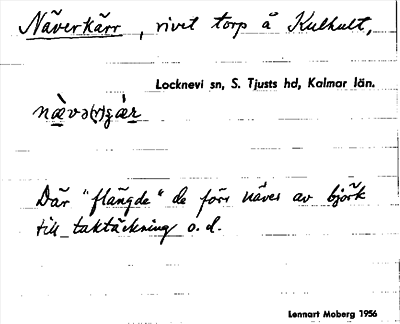 Näverkärr, rivet torp å Kulhult,
Locknevi sn, S. Tjusts hd, Kalmar län.
nævə(r)çær
Där "flängde" de förr näver av björk
till taktäckning o.d.
Lennart Moberg 1956